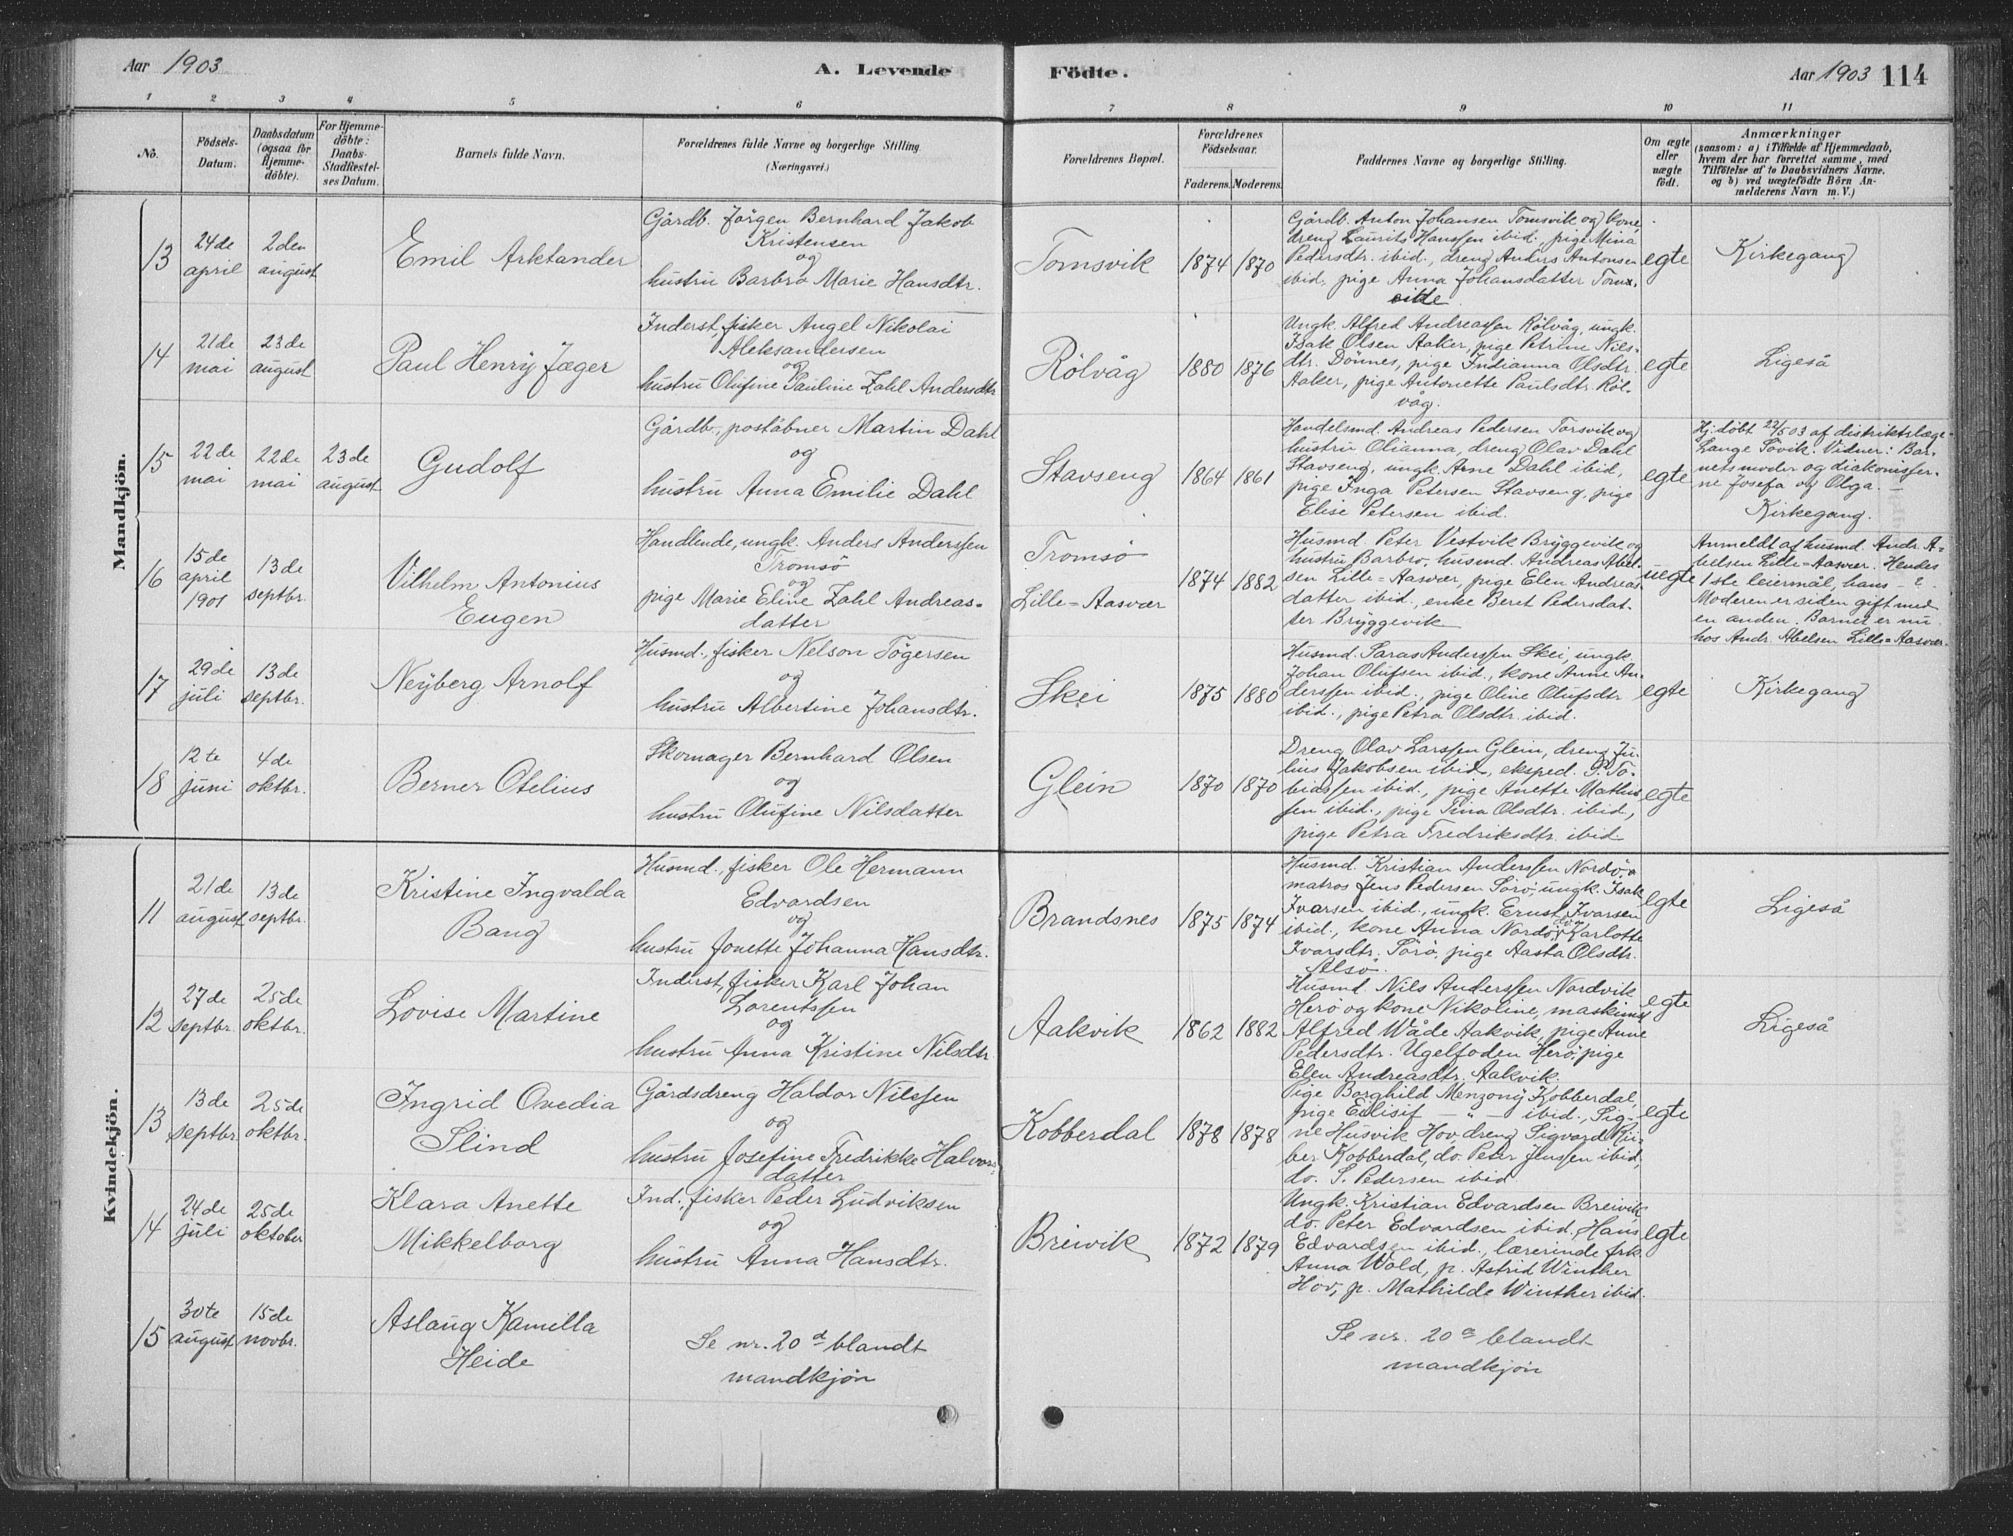 Aar 1903
A. Levende
Födte.
Aar 1903
114
1
2
3
4
5
6
7
8
9
10
11
No.
Födsels-
Datum.
Daabsdatum
(ogsaa for
Hjemme-
döbte).
For Hjemme-
döbte:
Daabs-
Stadfæstel-
ses Datum.
Barnets fulde Navn.
Forældrenes fulde Navne og borgerlige Stilling.
(Næringsvei.)
Forældrenes Bopæl.
Forældrenes
Födselsaar.
Faderens.
Moderens.
Faddernes Navne og borgerlige Stilling.
Om ægte
eller
uægte
födt.
Anmærkninger
(saasom: a) i Tilfælde af Hjemmedaab,
hvem der har forrettet samme, med
Tilföielse af to Daabsvidners Navne,
og b) ved uægtefödte Börn An-
melderens Navn m. V.)
Mandkjön.
13
24de
april
2den
august
Emil Arktander
Gårdb. Jörgen Bernhard Jakob
Kristensen
og
hustru Barbro Marie Hansdtr.
Tomsvik
1874
1870
Gårdb. Anton Johansen Tomsvik og kone,
dreng Laurits Hanssen ibid., pige Mina
Pedersdtr. ibid., dreng Anders Antonsen
ibid., pige Anna Johansdatter Toms-
egte
Kirkegang
14
21de
mai
23de
august
Paul Henrÿ Jæger
Inderst, fisker Angel Nikolai
Aleksandersen
og
hustru Olufine Pauline Zahl Andersdtr
Rölvåg
1880
1876
Ungk. Alfred Andreassen Rölvåg, ungk.
Isak Olsen Aaker, pige Petrine Nils-
dtr. Dönnes, pige Indianna Olsdtr.
Aaker, pige Antonette Paulsdtr. Röl-
våg.
egte
Ligeså
15
22de
mai
22de
mai
23de
august
Gudolf
Gårdb., poståbner Martin Dahl
og
hustru Anna Emilie Dahl
Stavseng
1864
1861
Handelsmd Andreas Pedersen Torsvik og
hustru Olianna, dreng Olav Dahl
Stavseng, ungk. Arne Dahl ibid.,
pige Inga Petersen Stavseng, pige
Elise Petersen ibid.
egte
Hj. döbt 22/5 03 af distriktslæge
Lange Sövik. Vidner: Bar-
nets moder og diakonisser-
ne Josefa og Olga.
Kirkegang.
16
15de
april
1901
13de
septbr.
Vilhelm Antonius
Eugen
Handlende, ungk. Anders Anderssen
Tromsö
og
pige Marie Eline Zahl Andreas-
datter
Tromsö
Lille-Aasvær
1874
1882
Husmd Peter Vestvik Bryggevik og
hustru Barbro, husmd. Andreas Abel-
sen Lille-Aasvær, pige Elen Andreas-
datter ibid., enke Beret Pedersdat-
ter Bryggevik
uegte
Anmeldt af husmd. Andr. A-
belsen Lille-Aasvær. Hendes
1ste leiermål, hans - ?
Moderen er siden gift med
en anden. Barnet er nu
hos Andr. Abelsen Lille-Aasvær.
17
29de
juli
13de
septbr.
Neÿberg Arnolf
Husmd., fisker Nelson Tögersen
og
hustru Albertine Johansdtr.
Skei
1875
1880
Husmd. Saras Anderssen Skei, ungk.
Johan Olufsen ibid., kone Anne An-
derssen ibid., pige Oline Olufsdtr.
ibid., pige Petra Olsdtr. ibid.
egte
Kirkegang
18
12te
juni
4de
oktbr.
Berner Otelius
Skomager Bernhard Olsen
og
hustru Olufine Nilsdatter
Glein
1870
1870
Dreng Olav Larssen Glein, dreng Ju-
lius Jakobsen ibid., eksped. P. To-
biassen ibid., pige Anette Mathis-
sen ibid., pige Tina Olsdtr. ibid.,
pige Petra Fredriksdtr. ibid.
egte
Kvindekjön.
11
21de
august
13de
septbr.
Kristine Ingvalda
Bang
Husmd., fisker Ole Hermann
Edvardsen
og
hustru Jonette Johanna Hansdtr.
Brandsnes
1875
1874
Husmd. Kristian Anderssen Nordö,
matros Jens Pedersen Sörö, ungk. Isak
Ivarsen ibid., ungk. Ernst Ivarsen
ibid., kone Anna Nordö, Karlotte
Ivarsdtr. Sörö, pige Aasta Olsdtr.
Alsö.
egte
Ligeså
12
27de
septbr.
25de
oktbr.
Lovise Martine
Inderst, fisker Karl Johan
Lorentssen
og
hustru Anna Kristine Nilsdtr.
Aakvik
1862
1882
Husmd Nils Anderssen Nordvik
Herö og kone Nikoline, maskinist
Alfred Wåde Aakvik, pige Anne
Pedersdtr. Ugelfoden Herö, pige
Elen Andreasdtr. Aakvik.
egte
Ligeså
13
13de
septbr
25de
oktbr.
Ingrid Ovedia
Slind
Gårdsdreng Haldor Nilssen
og
hustru Josefine Fredrikke Halvor-
datter
Kobberdal
1878
1878
Pige Borghild Menzonÿ Kobberdal,
pige Edlisif - " - ibid., Sig-
ne Husvik Hov, dreng Sigvard Rii-
ber Kobberdal, do. Peter Jenssen ibid,
do. S. Pedersen ibid
egte
14
24de
juli
25de
oktober
Klara Anette
Mikkelborg
Ind., fisker Peder Ludviksen
og
hustru Anna Hansdtr.
Breivik
1872
1879
Ungk. Kristian Edvardsen Breivik
do. Peter Edvardsen ibid, Hans
Edvardsen ibid., lærerinde frk.
Anna Wold, p. Astrid Winther
Hov, p. Mathilde Winther ibid.
egte
15
30te
august
15de
novbr.
Aslaug Kamilla
Heide
Se nr. 20 d blandt
mandkjön
Se nr. 20 a blandt
mandkjön